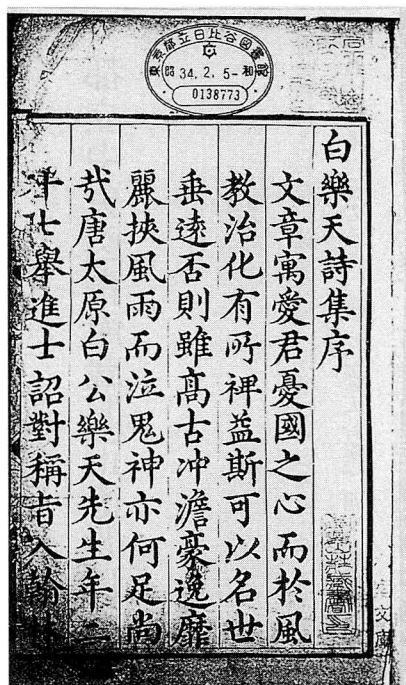 東京都立日比谷圖書館
昭和
34.2.5-
0138773
白樂天詩集序
文章寓愛君憂國之心而於風
教治化有所裨益斯可以名世
垂遠否則雖髙古冲澹豪逸靡
麗挾風雨而泣鬼神亦何足尚
㢤唐太原白公樂天先生年二
十七舉進士詔對稱旨入翰林
文庫